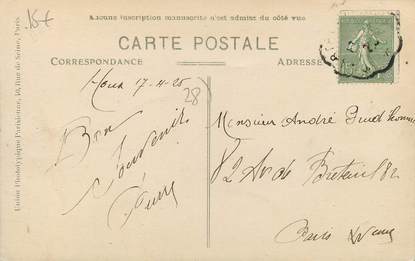 Aucune inscription manuscrite n'est admise du côté vue
15f
CARTE POSTALE
CORRESPONDANCE
ADRESSE
17-4-25
28
Bon
Souvenir
Monsieur André
82 Av de Breteuil 82
Paris
Union Phototypique Parisienne, 16, Rue de Seine, Paris